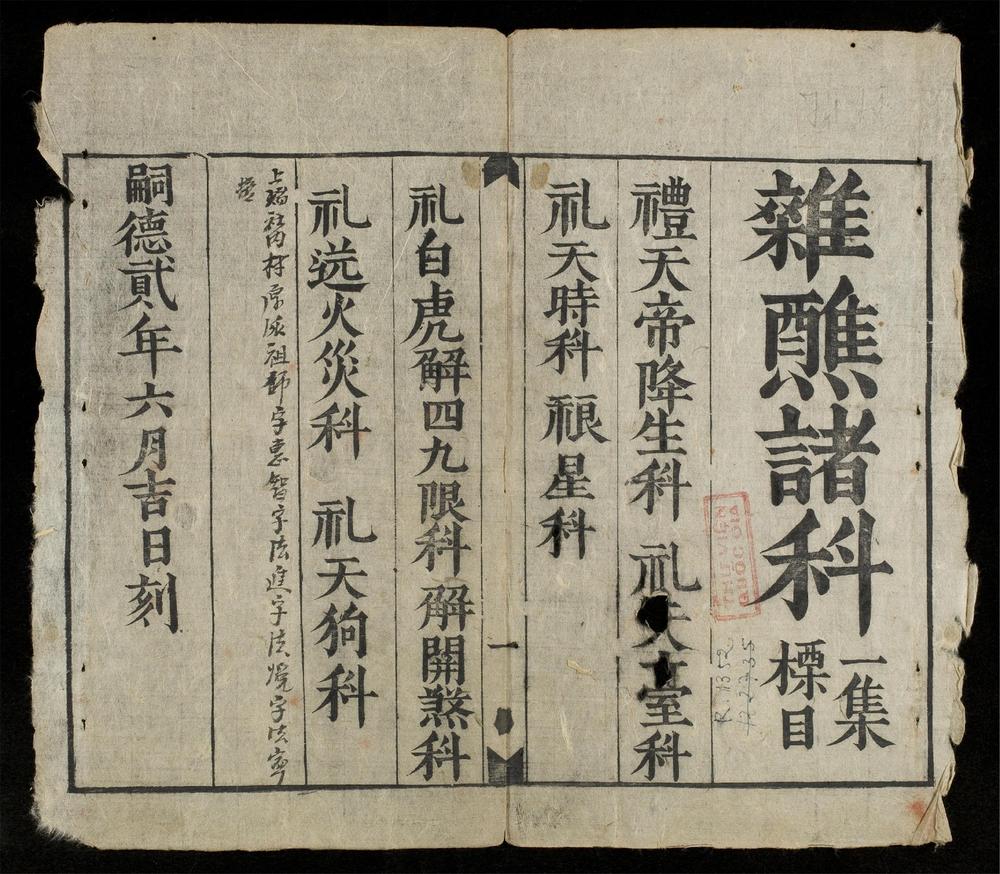 雜醮諸科
一集
標目
禮天帝降生科 礼 室科
礼天時科 䄄星科
一
礼白虎解四九限科 解開煞科
礼送火災科 礼天狗科
上 社 村 祖師字惠智字法進字法 字法寧
嗣德貳年六月吉日刻
THU VIEN
QUOC GIA
R. 1352
R. 2235